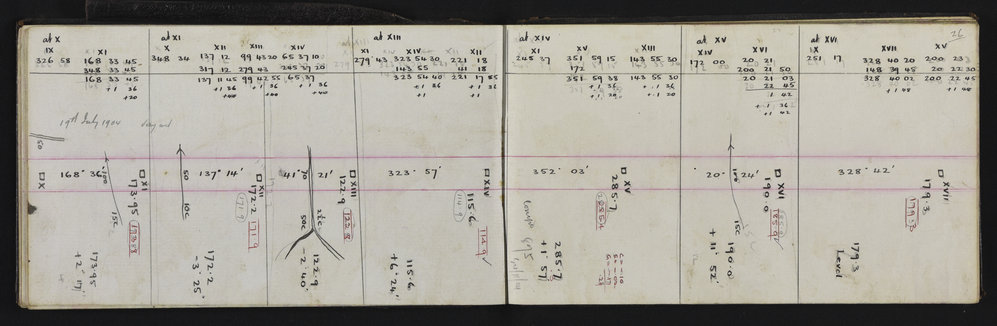 26
at X
IX XI
326 58 168 33 45
348 33 45
168 33 45
+1 36
+20
19th July 1904
50
168° 36'
100
15c
□ X
□ XI
173.95
173.95
+2° 17'
at XI
X XII XIII XIV
348 34 137 12 99 43 20 65 37 10
317 12 279 43 245 37 20
137 11 45 99 42 55 65 37
+1 36 +1 36 +1 36
+40 +40 +40
137° 14'
50
10c
□ XII
172.2
171.9
172.2
-3° 25'
41° 21'
50c
2½c
□ XIII
122.9
122.9
-2° 40'
at XIII
XI XIV XII
279 43 323 54 30 221 18
143 55 41 18
323 54 40 221 17 85
+1 36 +1 36
+1 +1
323° 57'
□ XIV
115.6
114.9
115.6
+6° 24'
at XIV
XI XV XIII
245 37 351 59 15 143 55 30
172
351 59 38 143 55 30
+1 36 +1 36
+1 29 +1 20
352° 03'
□ XV
285.7
285.7
+1° 57'
at XV
XIV XVI
172 00 20 21
200 21 50
20 21 03
22 45
1 42
+1 36
+1 42
20° 24'
100
15c
□ XVI
190.0
190.0
+11° 52'
at XVI
XVII XV
251 17 328 40 20 200 23
148 39 45 20 22 30
328 40 02 200 22 45
+1 48 +1 48
328° 42'
□ XVII
179.3
179.3
179.3
Level